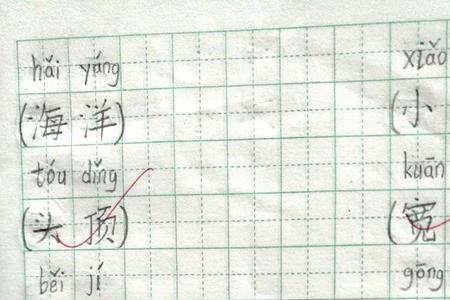 hǎi yáng xiǎo
(海 洋) (小
tóu dǐng kuān
(头 顶) (宽
běi jí gōng